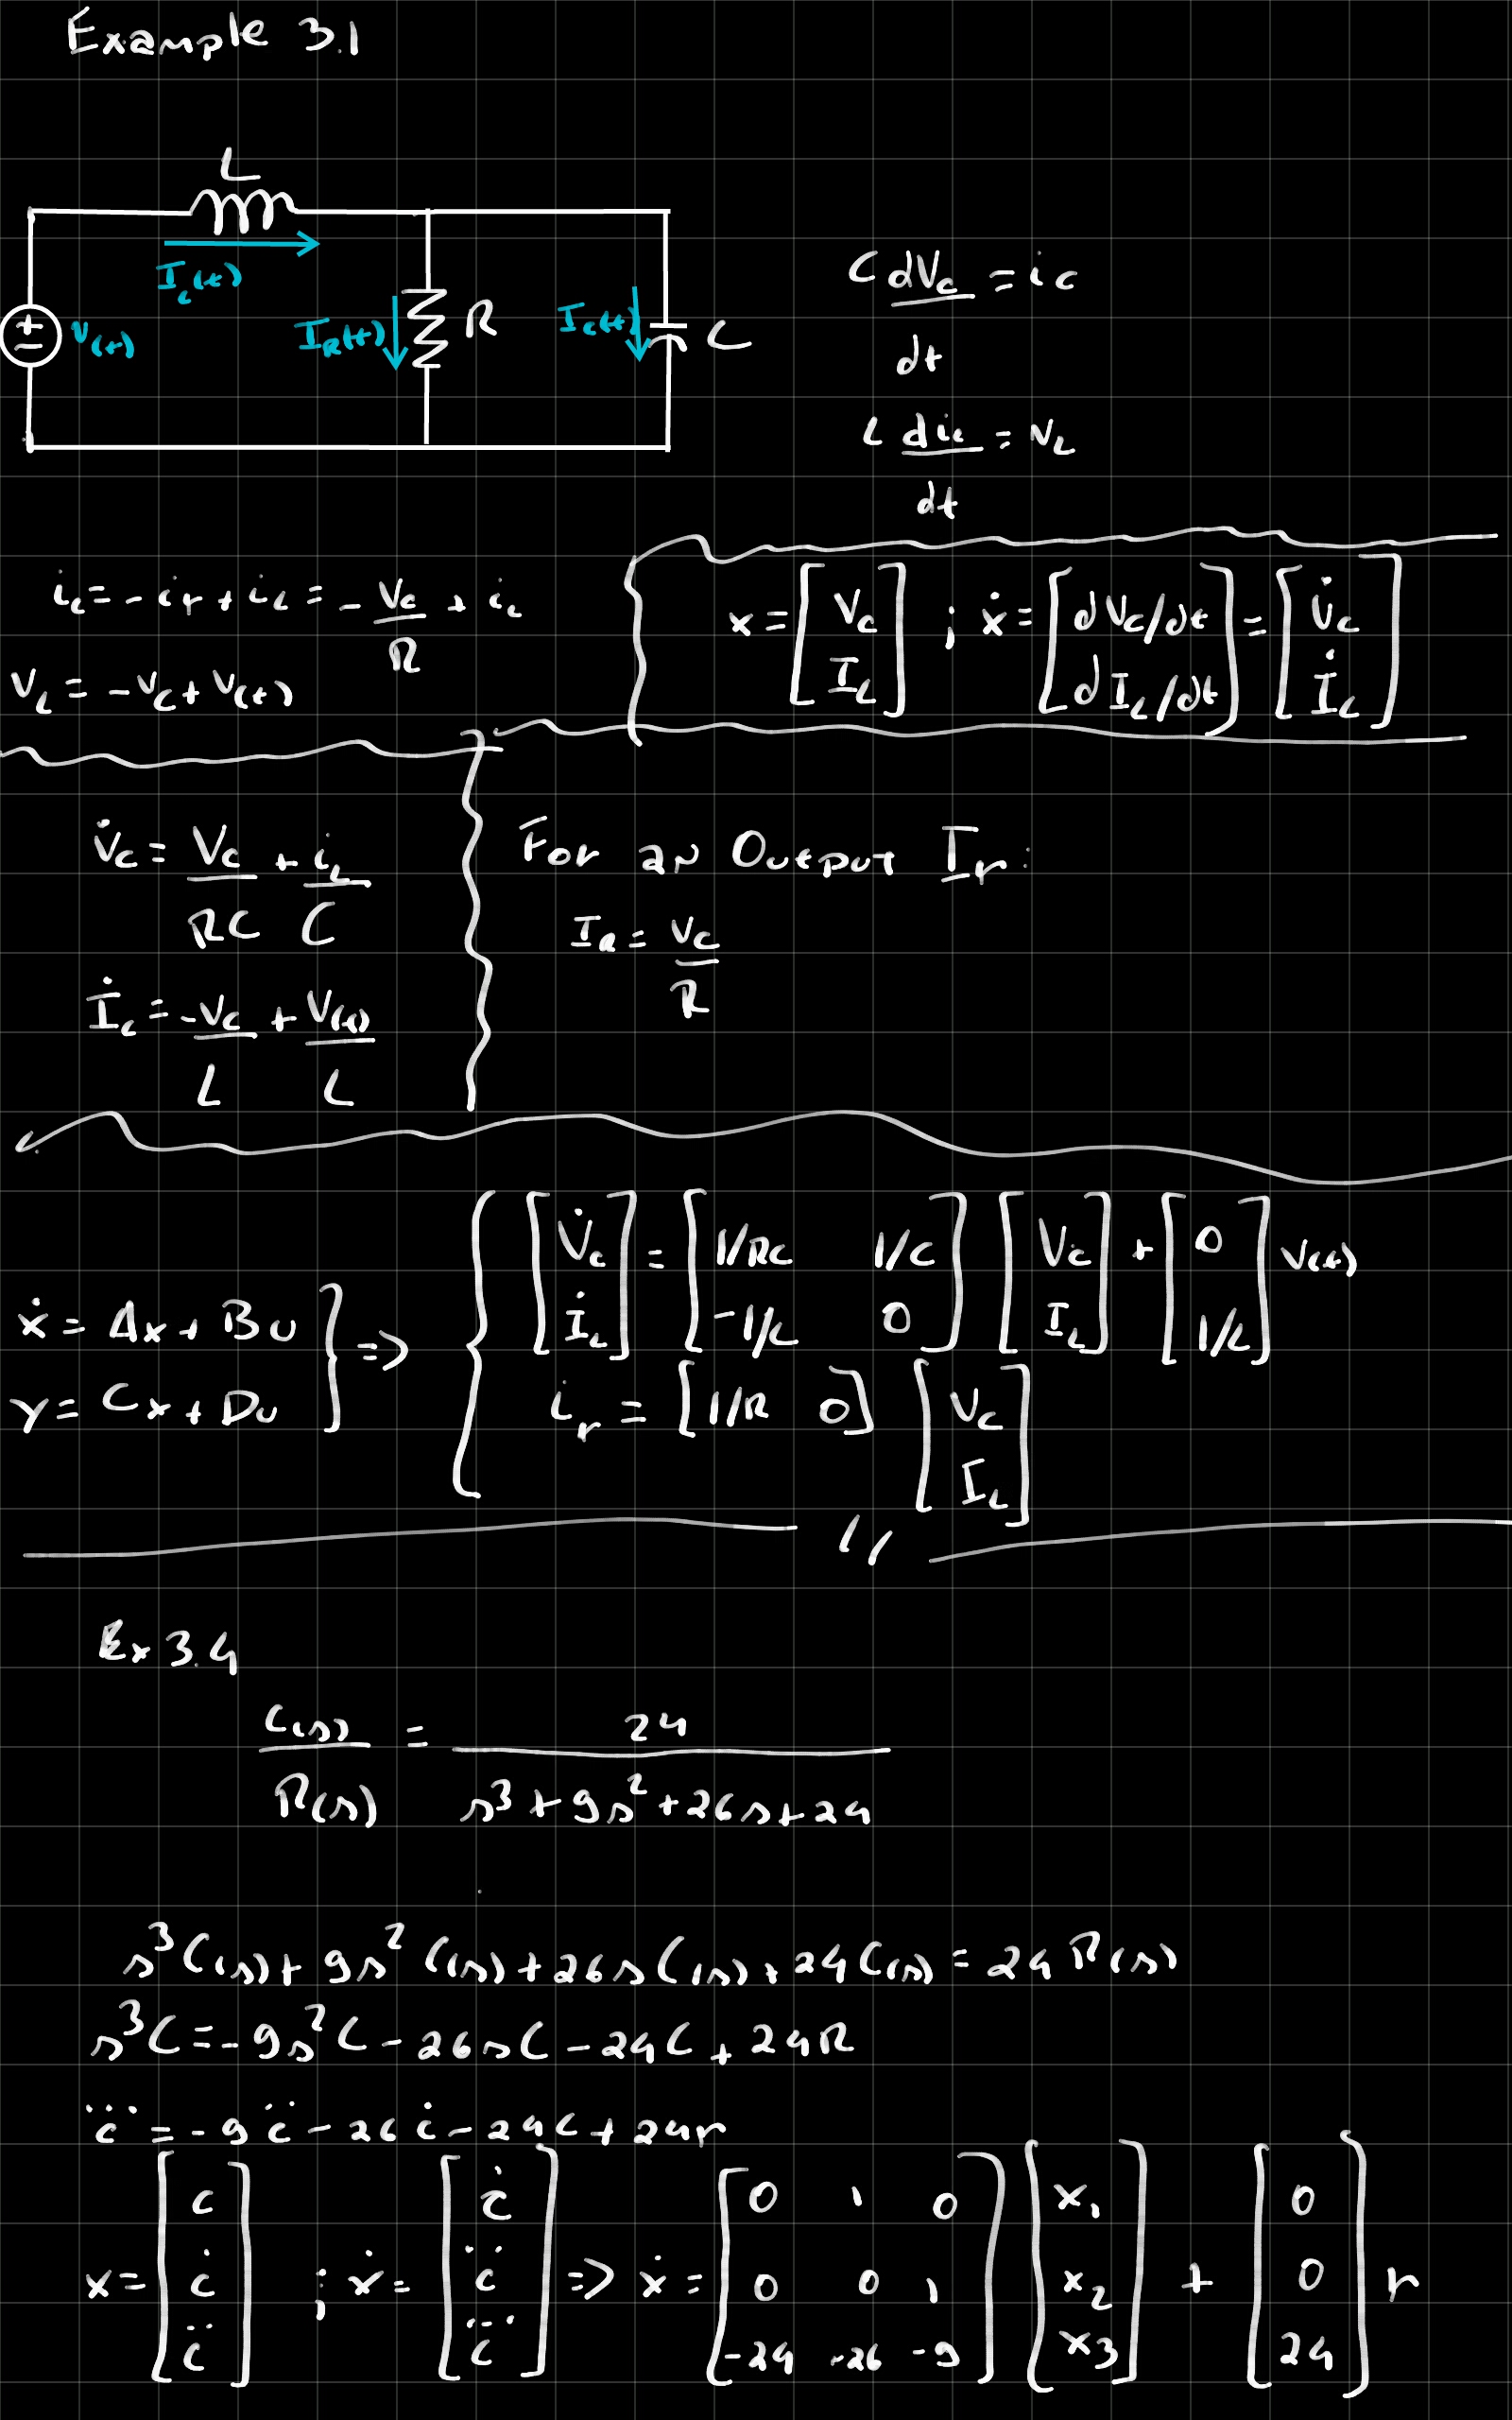 Example 3.1
L
I_L(t)
V(t)
I_R(t)
R
I_C(t)
C
C dV_C/dt = i_C
L di_L/dt = V_L
i_C = -i_r + i_L = -V_C/R + i_L
V_L = -V_C + V(t)
x = [V_C; I_L] ; ẋ = [dV_C/dt; dI_L/dt] = [V̇_C; İ_L]
V̇_C = V_C/RC + i_L/C
İ_L = -V_C/L + V(t)/L
For an Output I_r:
I_R = V_C/R
ẋ = Ax + Bu
y = Cx + Du
} => { [V̇_C; İ_L] = [1/RC 1/C; -1/L 0] [V_C; I_L] + [0; 1/L] V(t)
i_r = [1/R 0] [V_C; I_L]
Ex 3.4
C(s)/R(s) = 24/(s³+9s²+26s+24)
s³C(s)+9s²C(s)+26sC(s)+24C(s)=24R(s)
s³C=-9s²C-26sC-24C+24R
c⃛=-9c̈-26ċ-24c+24r
x=[c; ċ; c̈] ; ẋ=[ċ; c̈; c⃛] => ẋ=[0 1 0; 0 0 1; -24 -26 -9] [x₁; x₂; x₃] + [0; 0; 24] r